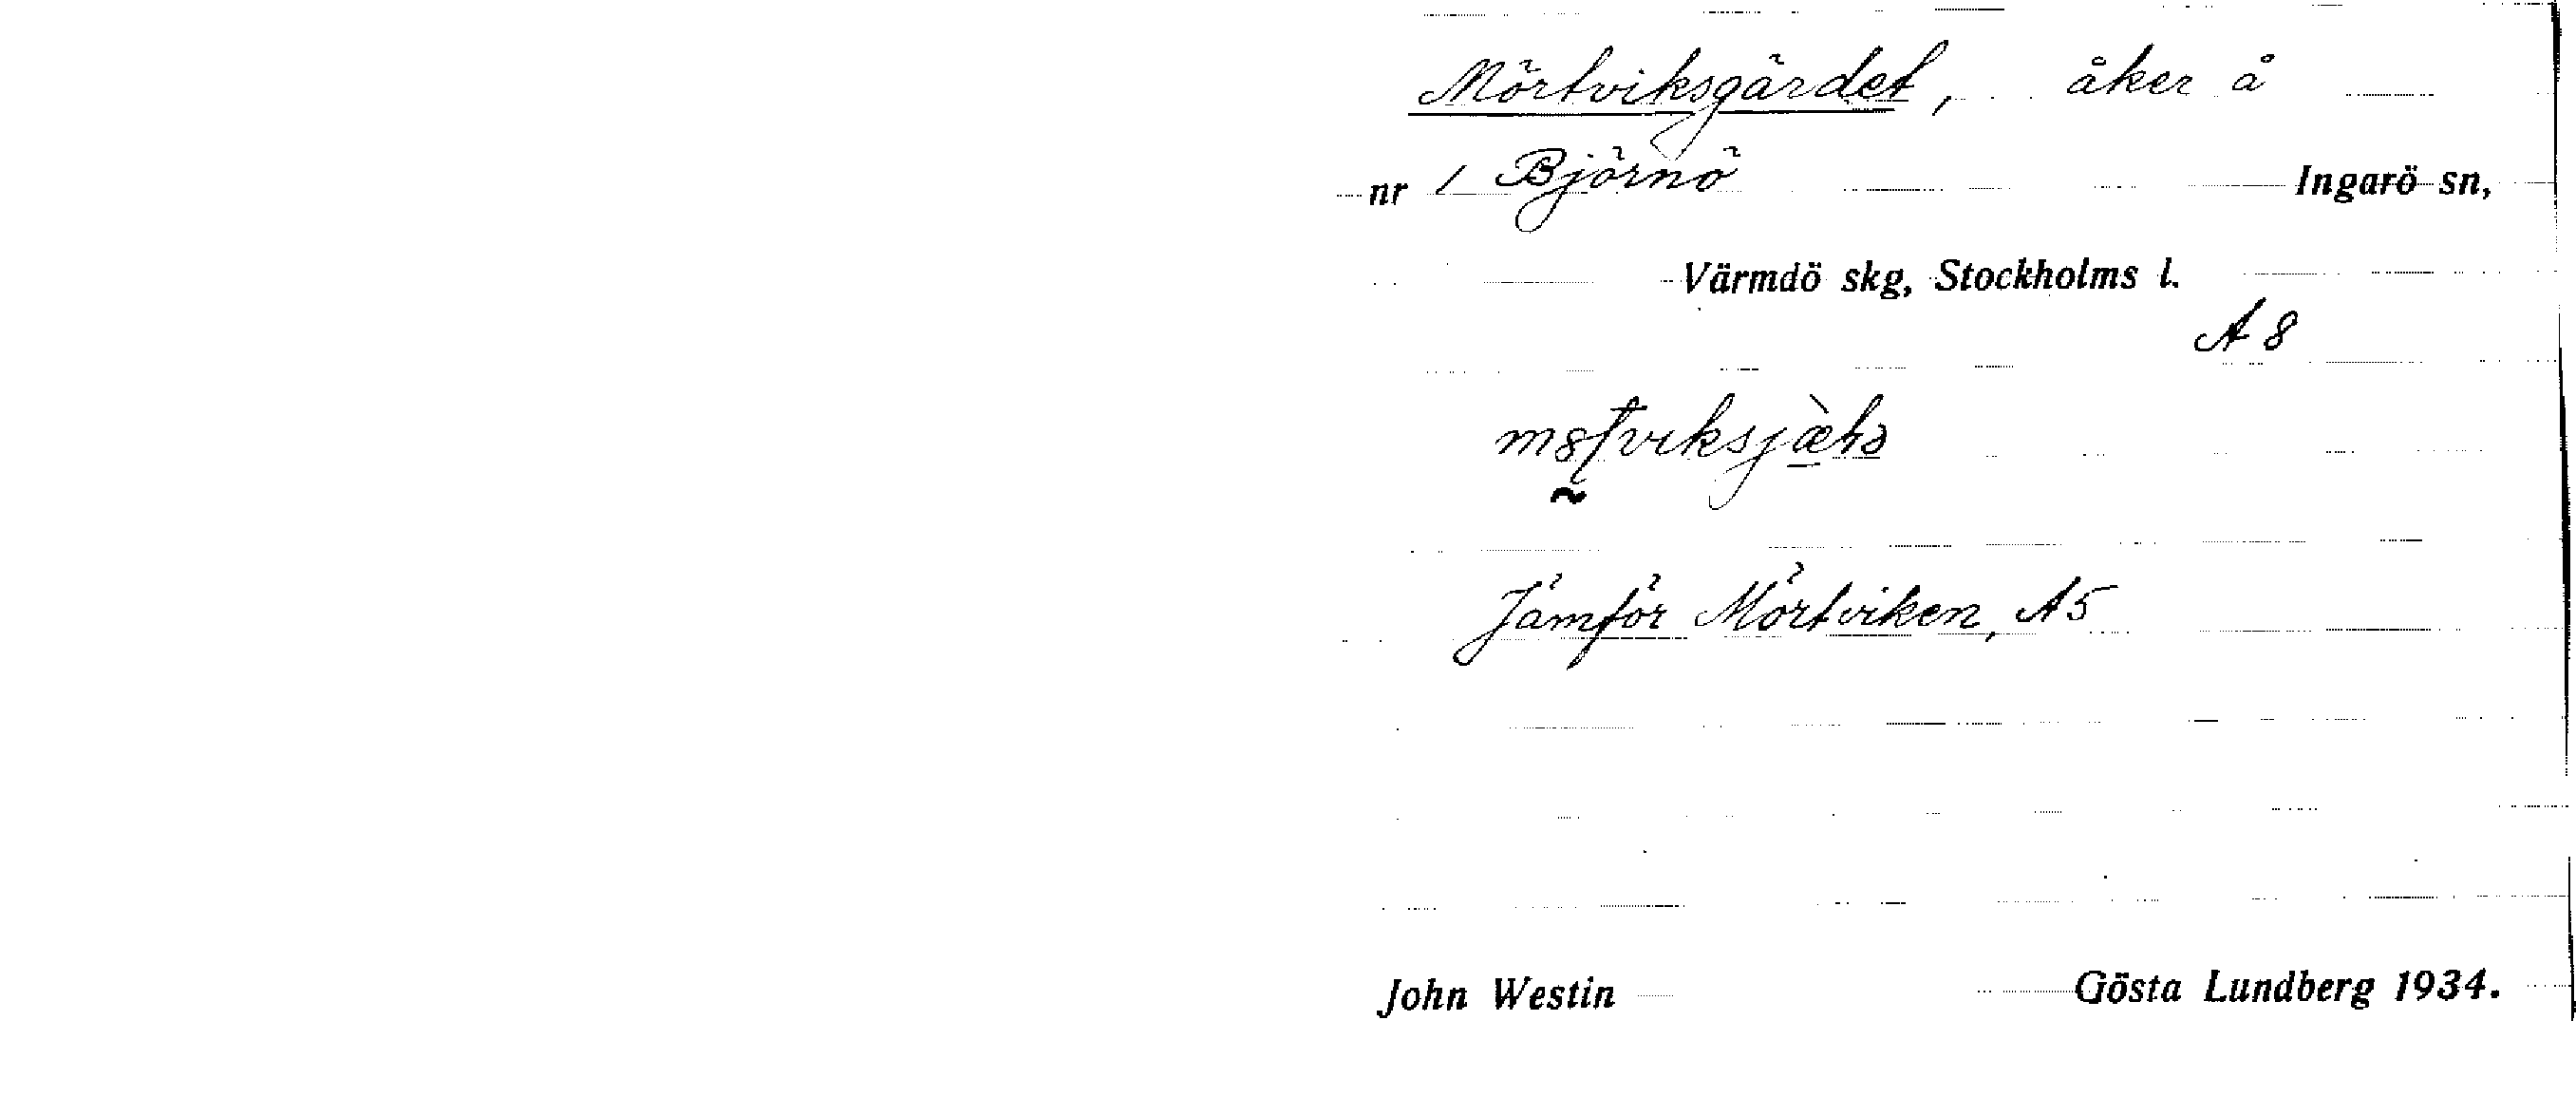 Mörtviksgärdet, åker å
nr 1 Björnö Ingarö sn,
Värmdö skg, Stockholms l.
A 8
Jämför Mörtviken, A5
John Westin Gösta Lundberg 1934.